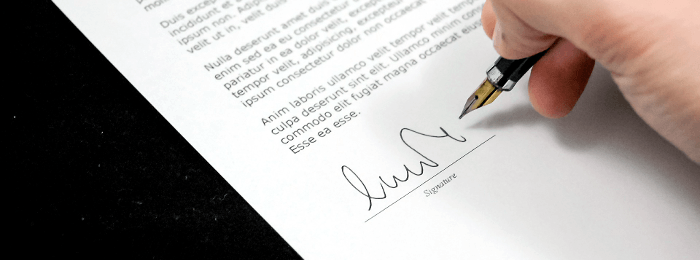 Duis
incididunt et
ipsum non.
velit ut in, velit duis
Nulla deserunt amet duis
enim sed ea eu consectetur
pariatur in ea dolor velit,
tempor velit, adipisicing,
ipsum consectetur dolor non occaecat
Anim laboris ullamco velit tempor velit
culpa deserunt sint elit. Ullamco minim
commodo elit fugiat magna occaecat
Esse ea esse.
Signature